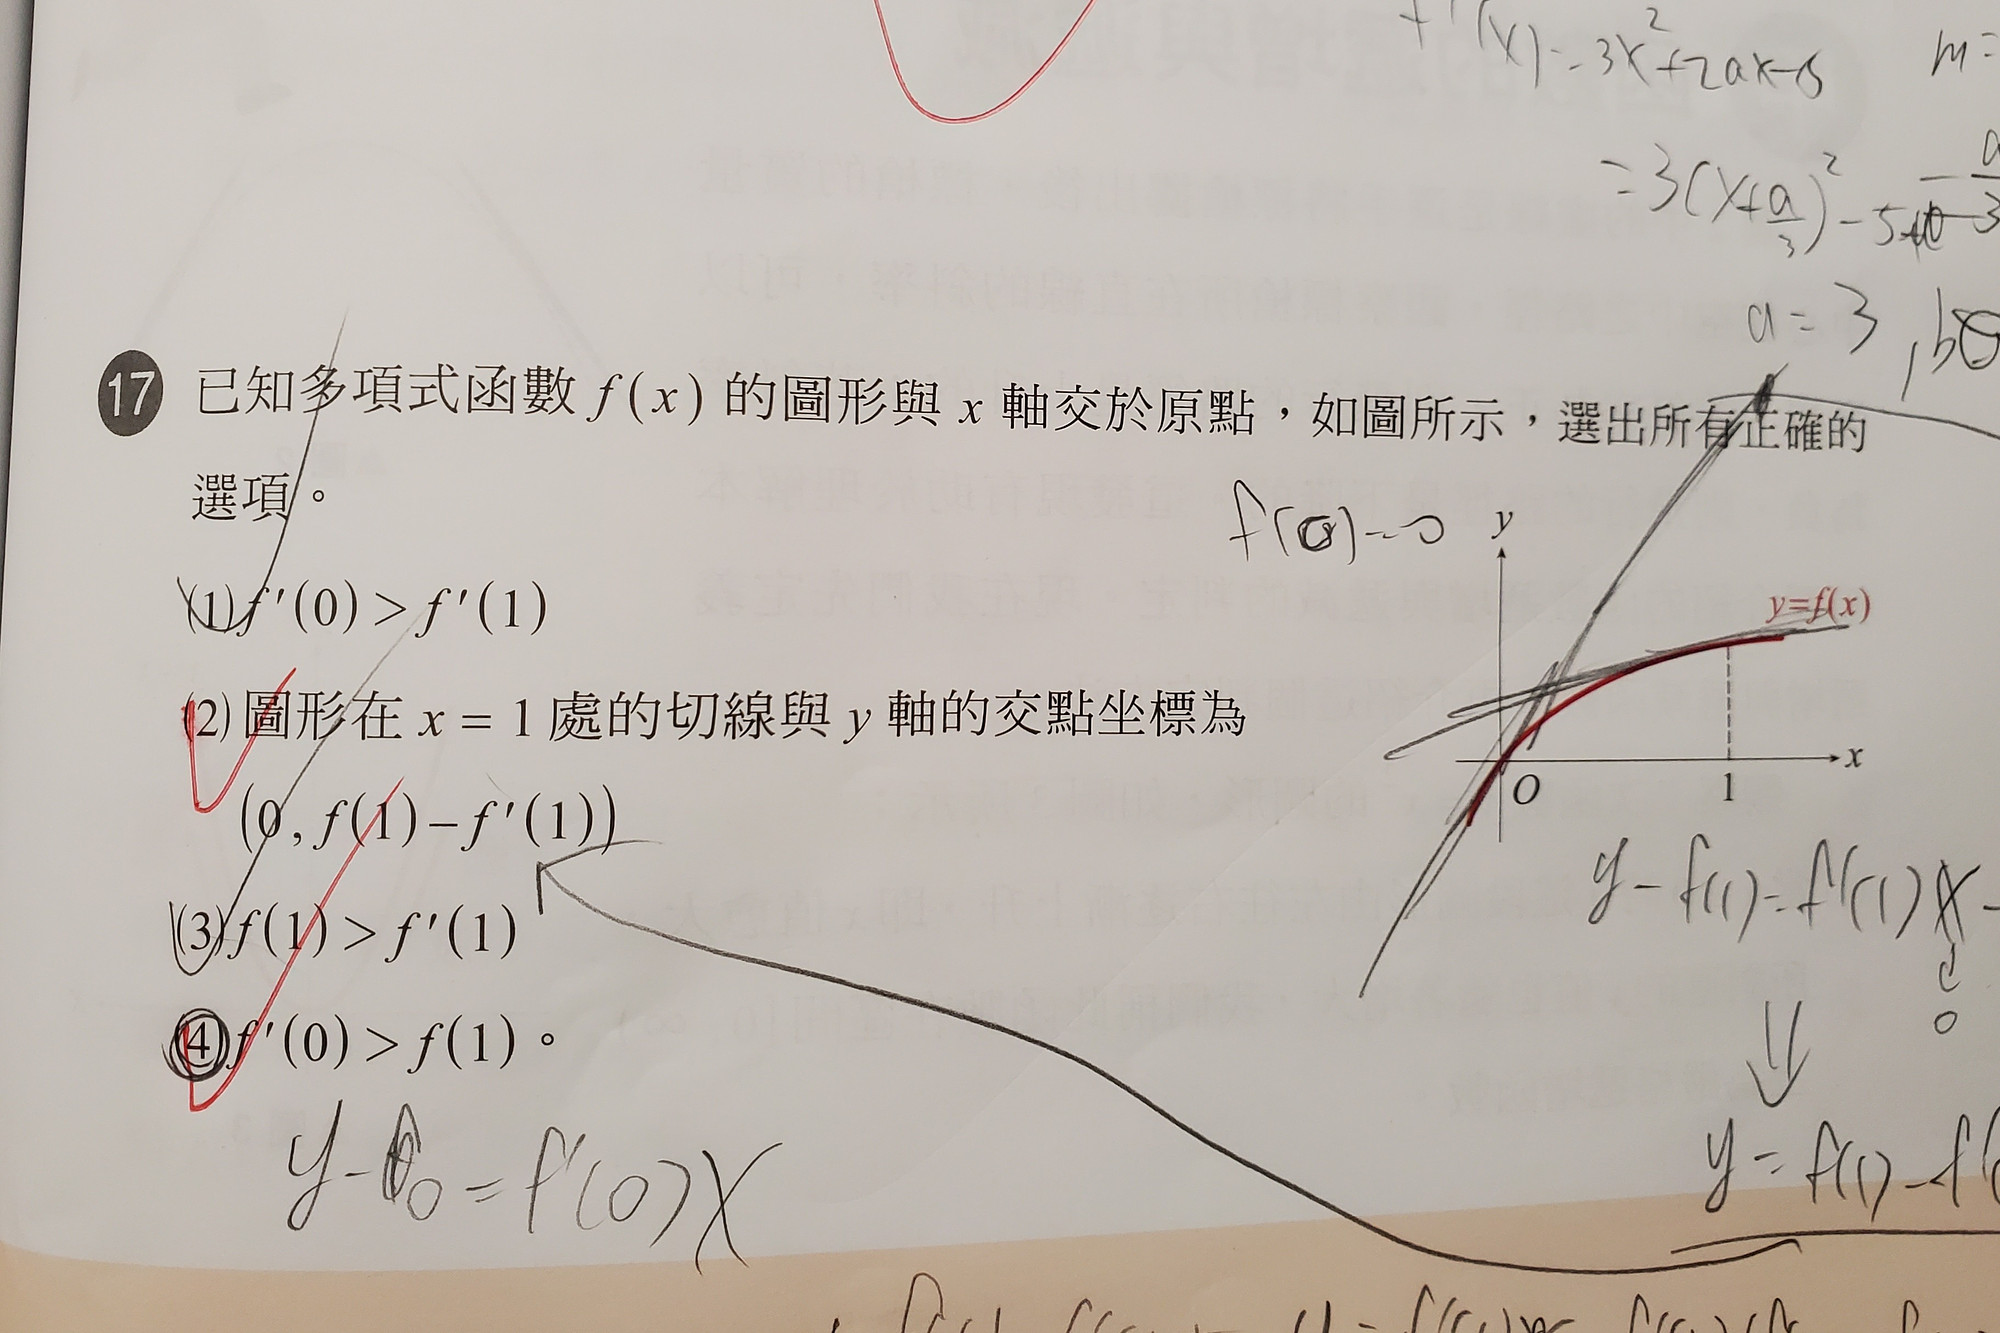 f'(x)=3x²+2ax-b
m=
=3(x+a/3)²-5
a=3
17 已知多項式函數 f(x) 的圖形與 x 軸交於原點，如圖所示，選出所有正確的
選項。
f(0)=0
y
(1) f'(0)>f'(1)
y=f(x)
(2) 圖形在 x=1 處的切線與 y 軸的交點坐標為
x
O
1
(0, f(1)-f'(1))
y-f(1)=f'(1)x-
0
(3) f(1)>f'(1)
(4) f'(0)>f(1)。
y-0=f'(0)x
y=f(1)-f'(